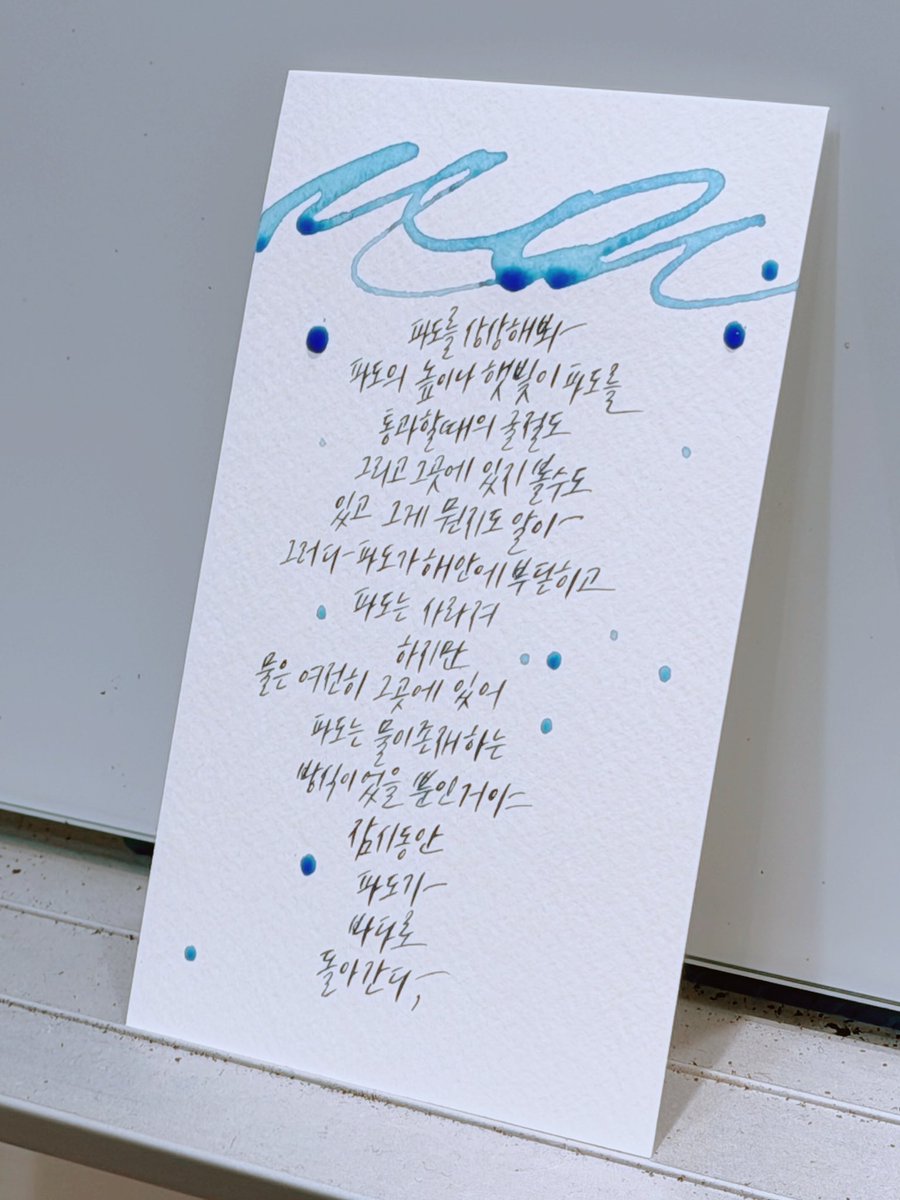 파도를 상상해봐
파도의 높이나 햇빛이 파도를
통과할때의 굴절도
그리고 그곳에 있지 볼수도
있고 그게 뭔지도 알아
그러다 파도가 해안에 부딛히고
파도는 사라져
하지만
물은 여전히 그곳에 있어
파도는 물이존재하는
방식이었을 뿐인거야
잠시동안
파도가
바다로
돌아간다,